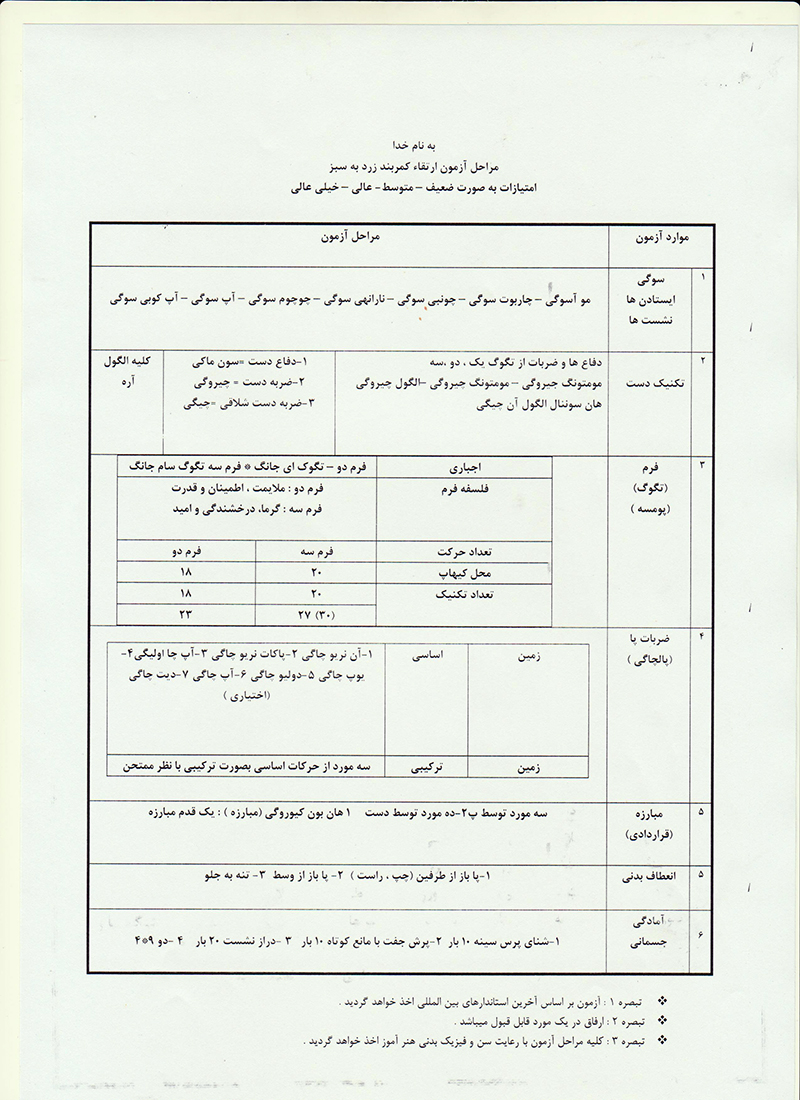 به نام خدا
مراحل آزمون ارتقاء کمربند زرد به سبز
امتیازات به صورت ضعیف – متوسط- عالی – خیلی عالی
موارد آزمون
مراحل آزمون
۱
سوگی
ایستادن ها
نشست ها
مو آسوگی – چاربوت سوگی – چونبی سوگی – نارانهی سوگی – چوچوم سوگی – آپ سوگی – آپ کوبی سوگی
۲
تکنیک دست
دفاع ها و ضربات از تگوگ یک ، دو ،سه
مومتونگ جیروگی – مومتونگ چیروگی –الگول چیروگی
هان سوننال الگول آن چیگی
۱-دفاع دست =سون ماکی
۲-ضربه دست = چیروگی
۳-ضربه دست شلاقی =چیگی
کلیه الگول
آره
۳
فرم
(تگوگ)
(پومسه )
اجباری
فرم دو – تگوک ای جانگ * فرم سه تگوگ سام جانگ
فلسفه فرم
فرم دو : ملایمت ، اطمینان و قدرت
فرم سه : گرما، درخشندگی و امید
تعداد حرکت
فرم سه
فرم دو
محل کیهاپ
۲۰
۱۸
تعداد تکنیک
۲۰
۱۸
(۳۰) ۲۷
۲۳
۴
ضربات پا
(پالچاگی )
زمین
اساسی
۱-آن نریو چاگی ۲-پاکات نریو چاگی ۳-آپ چا اولیگی۴-
یوپ چاگی ۵-دولیو چاگی ۶-آپ چاگی ۷-دیت چاگی
(اختیاری )
زمین
ترکیبی
سه مورد از حرکات اساسی بصورت ترکیبی با نظر ممتحن
۵
مبارزه
(قراردادی)
سه مورد توسط پ۲-ده مورد توسط دست ۱ هان بون کیوروگی (مبارزه ) : یک قدم مبارزه
۵
انعطاف بدنی
۱-پا باز از طرفین (چپ ، راست ) ۲- پا باز از وسط ۳- تنه به جلو
۶
آمادگی
جسمانی
۱-شنای پرس سینه ۱۰ بار ۲-پرش جفت با مانع کوتاه ۱۰ بار ۳ -دراز نشست ۲۰ بار ۴ -دو ۹*۴
❖ تبصره ۱ : آزمون بر اساس آخرین استاندارهای بین المللی اخذ خواهد گردید .
❖ تبصره ۲ : ارفاق در یک مورد قابل قبول میباشد .
❖ تبصره ۳ : کلیه مراحل آزمون با رعایت سن و فیزیک بدنی هنر آموز اخذ خواهد گردید .